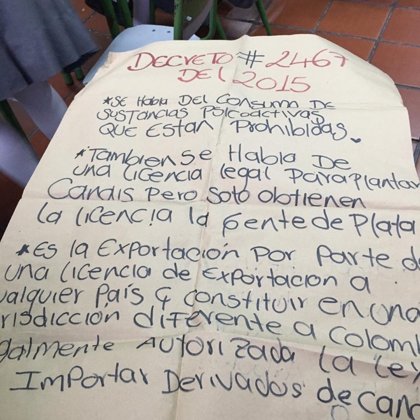 DECRETO # 2467
DEL 2015
*SE Habla DEL CONSUMO DE
SUSTANCIAS PSICOACTIVAS
QUE ESTAN PROHIBIDAS.
*Tambien Se Habla De
una Licencia Legal Para planta
Canais Pero Solo obtienen
la licencia la Gente de Plata
*Es la Exportación Por Parte de
una licencia de Exportacion a
ualquier País Y constituir en una
risdicción diferente a Colom
galmente Autorizada la Ley
Importar Derivados de Can